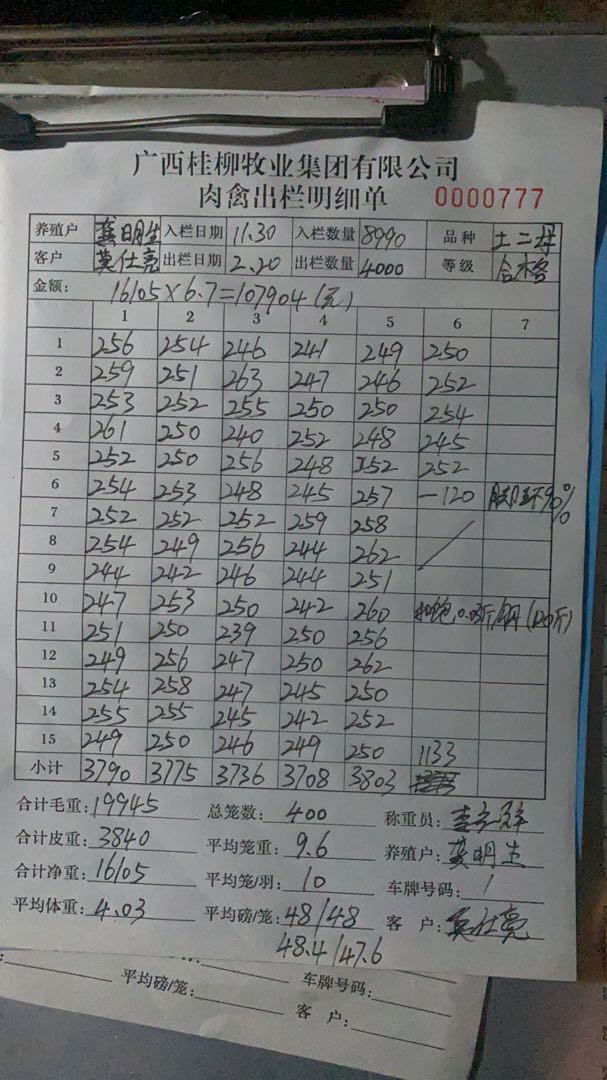 广西桂柳牧业集团有限公司
肉禽出栏明细单 0000777
养殖户 龚明生 入栏日期 11.30 入栏数量 8990 品种 土二杂
客户 莫仕亮 出栏日期 2.20 出栏数量 4000 等级 合格
金额: 16105×6.7=107904(元)
1 2 3 4 5 6 7
1 256 254 246 241 249 250
2 259 251 263 247 246 252
3 253 252 255 250 250 254
4 261 250 240 252 248 245
5 252 250 256 248 252 252
6 254 253 248 245 257 -120 90%
7 252 252 252 259 258
8 254 249 256 244 262
9 244 242 246 244 251
10 247 253 250 242 260 0.03斤/ (120斤)
11 251 250 239 250 256
12 249 256 247 250 262
13 254 258 247 245 250
14 255 255 245 242 252
15 249 250 246 249 250 1133
小计 3790 3775 3736 3708 3803
合计毛重: 19945 总笼数: 400 称重员:
合计皮重: 3840 平均笼重: 9.6 养殖户: 龚明生
合计净重: 16105 平均笼/羽: 10 车牌号码: 1
平均体重: 4.03 平均磅/笼: 48/48 客户: 莫仕亮
48.4/47.6
平均磅/笼: 车牌号码:
客户: